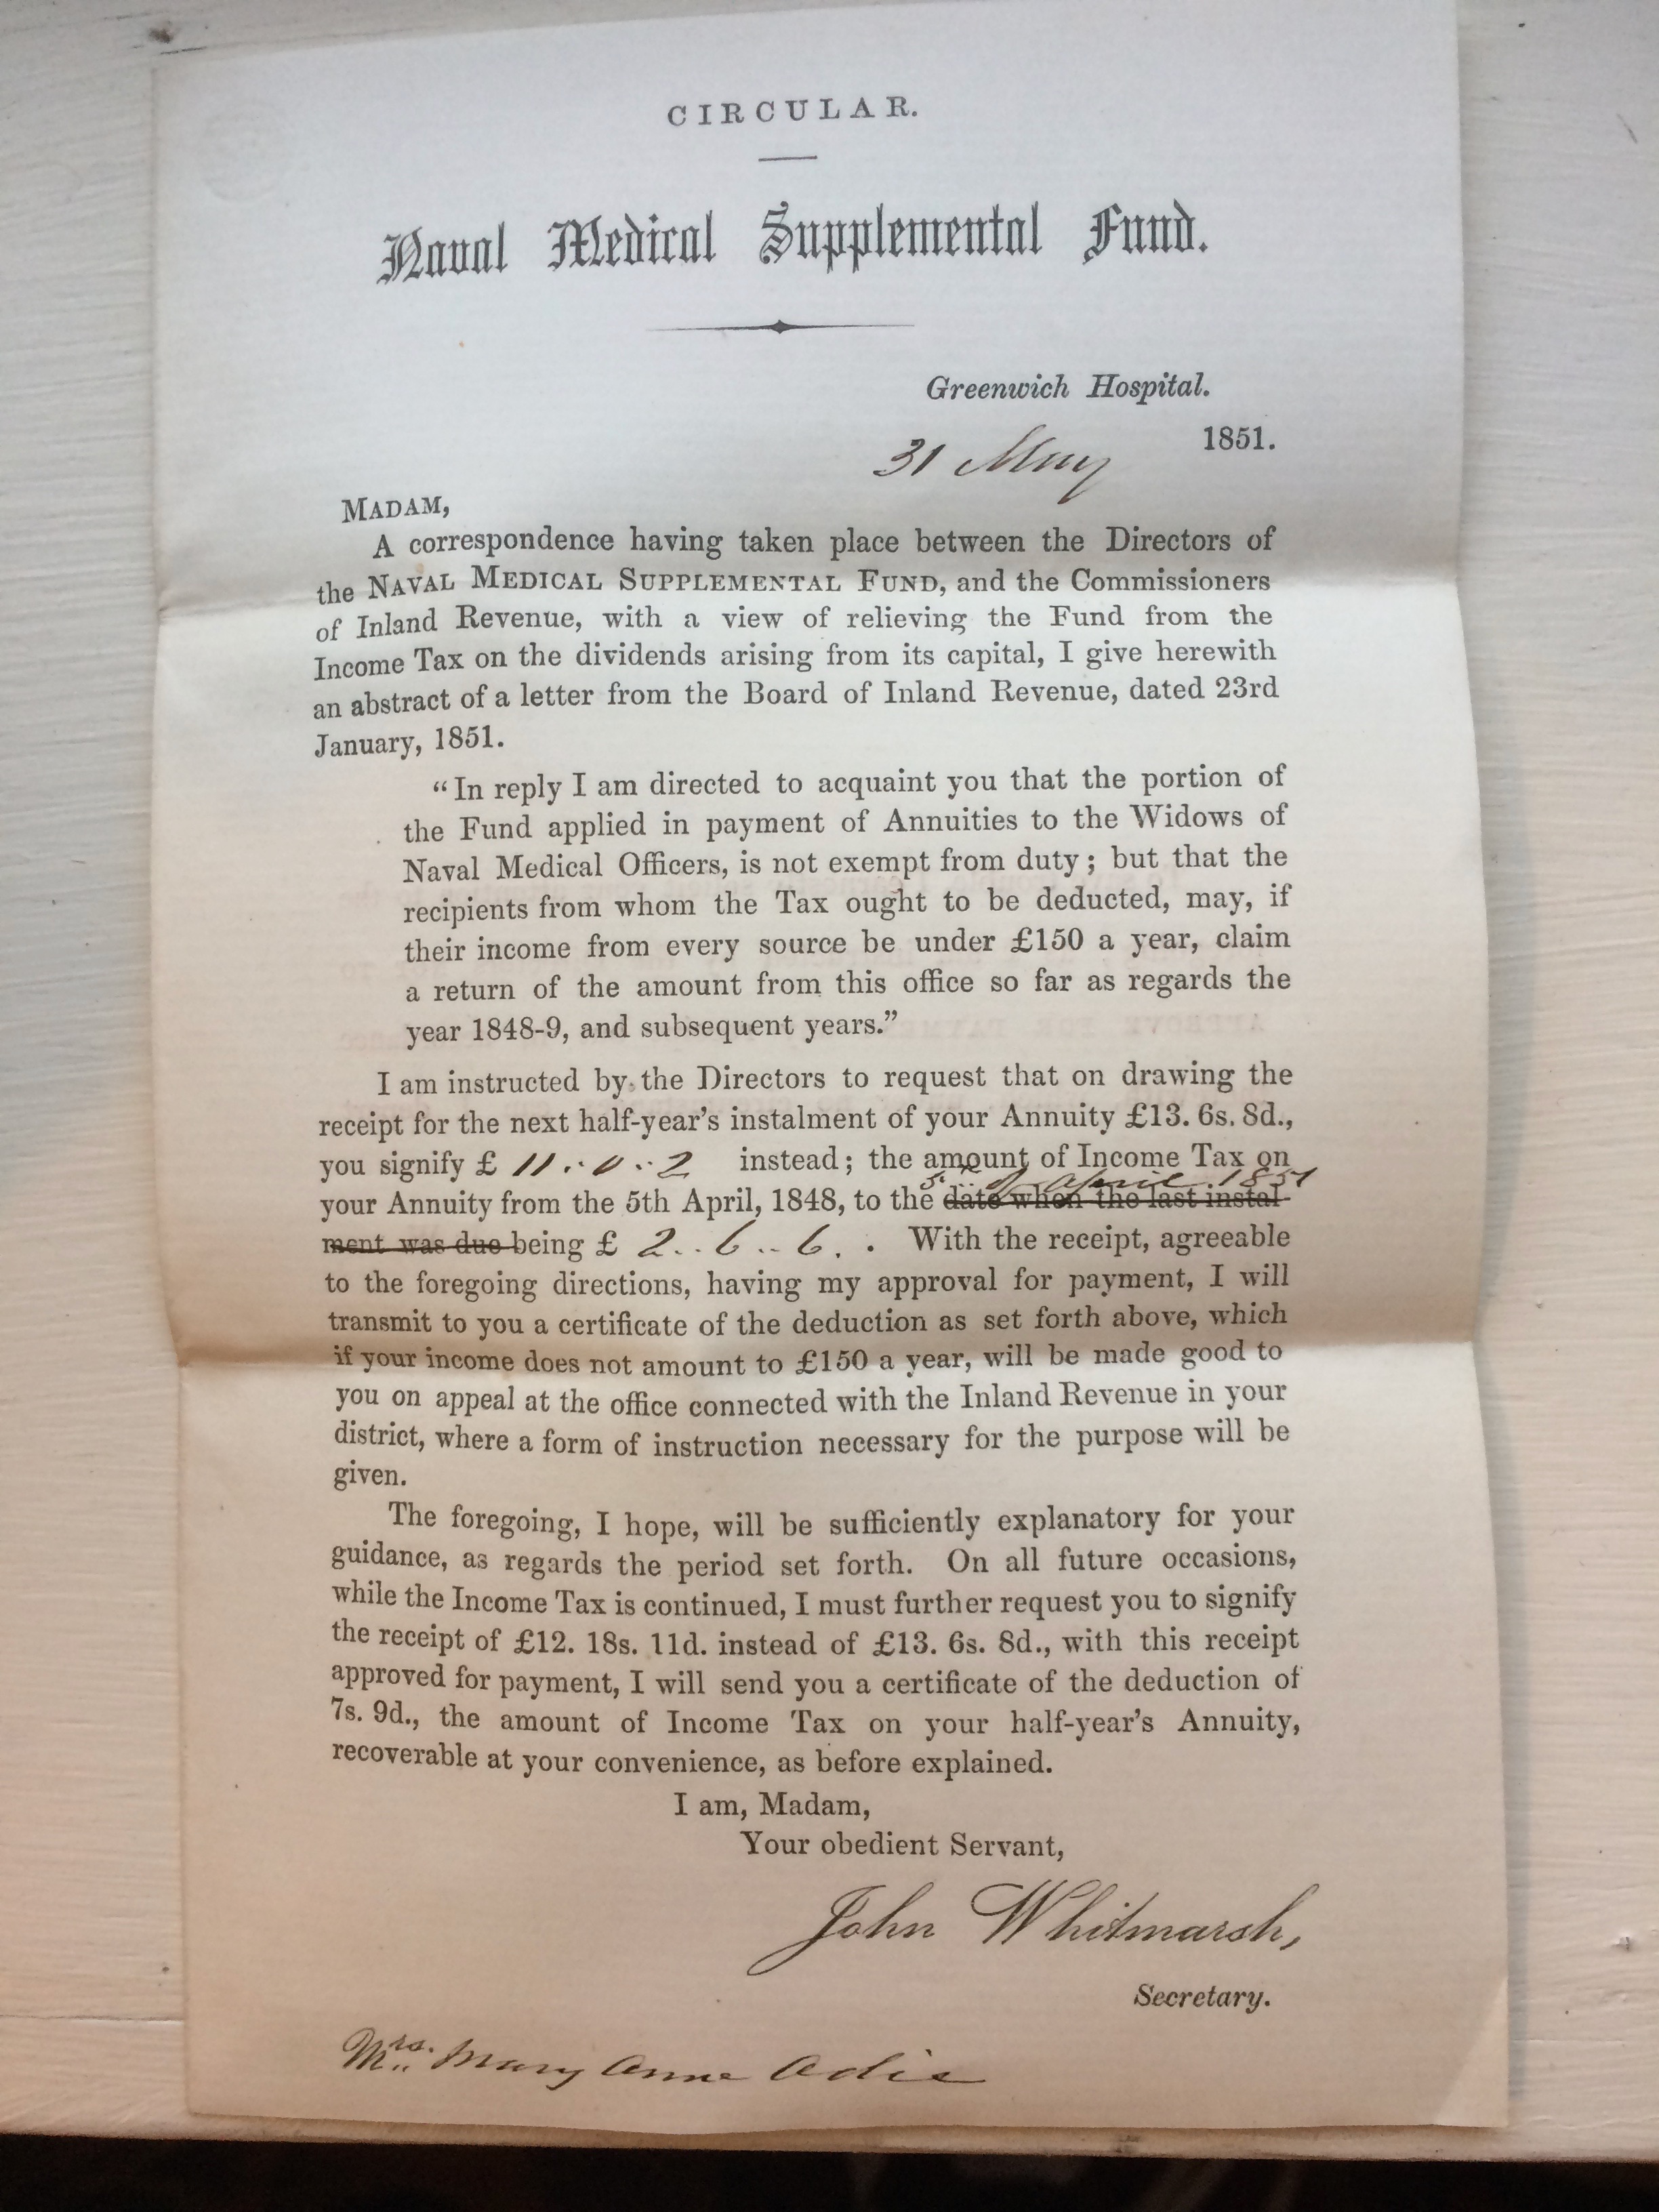 CIRCULAR.
Naval Medical Supplemental Fund.
Greenwich Hospital.
31 May 1851.
MADAM,
A correspondence having taken place between the Directors of
the NAVAL MEDICAL SUPPLEMENTAL FUND, and the Commissioners
of Inland Revenue, with a view of relieving the Fund from the
Income Tax on the dividends arising from its capital, I give herewith
an abstract of a letter from the Board of Inland Revenue, dated 23rd
January, 1851.
“In reply I am directed to acquaint you that the portion of
the Fund applied in payment of Annuities to the Widows of
Naval Medical Officers, is not exempt from duty; but that the
recipients from whom the Tax ought to be deducted, may, if
their income from every source be under £150 a year, claim
a return of the amount from this office so far as regards the
year 1848-9, and subsequent years.”
I am instructed by the Directors to request that on drawing the
receipt for the next half-year’s instalment of your Annuity £13. 6s. 8d.,
you signify £ 11..0..2 instead; the amount of Income Tax on
5th of April 1851
your Annuity from the 5th April, 1848, to the date when the last instal-
ment was due being £ 2..6..6. . With the receipt, agreeable
to the foregoing directions, having my approval for payment, I will
transmit to you a certificate of the deduction as set forth above, which
if your income does not amount to £150 a year, will be made good to
you on appeal at the office connected with the Inland Revenue in your
district, where a form of instruction necessary for the purpose will be
given.
The foregoing, I hope, will be sufficiently explanatory for your
guidance, as regards the period set forth. On all future occasions,
while the Income Tax is continued, I must further request you to signify
the receipt of £12. 18s. 11d. instead of £13. 6s. 8d., with this receipt
approved for payment, I will send you a certificate of the deduction of
7s. 9d., the amount of Income Tax on your half-year’s Annuity,
recoverable at your convenience, as before explained.
I am, Madam,
Your obedient Servant,
John Whitmarsh,
Secretary.
Mrs. Mary Anne Adie